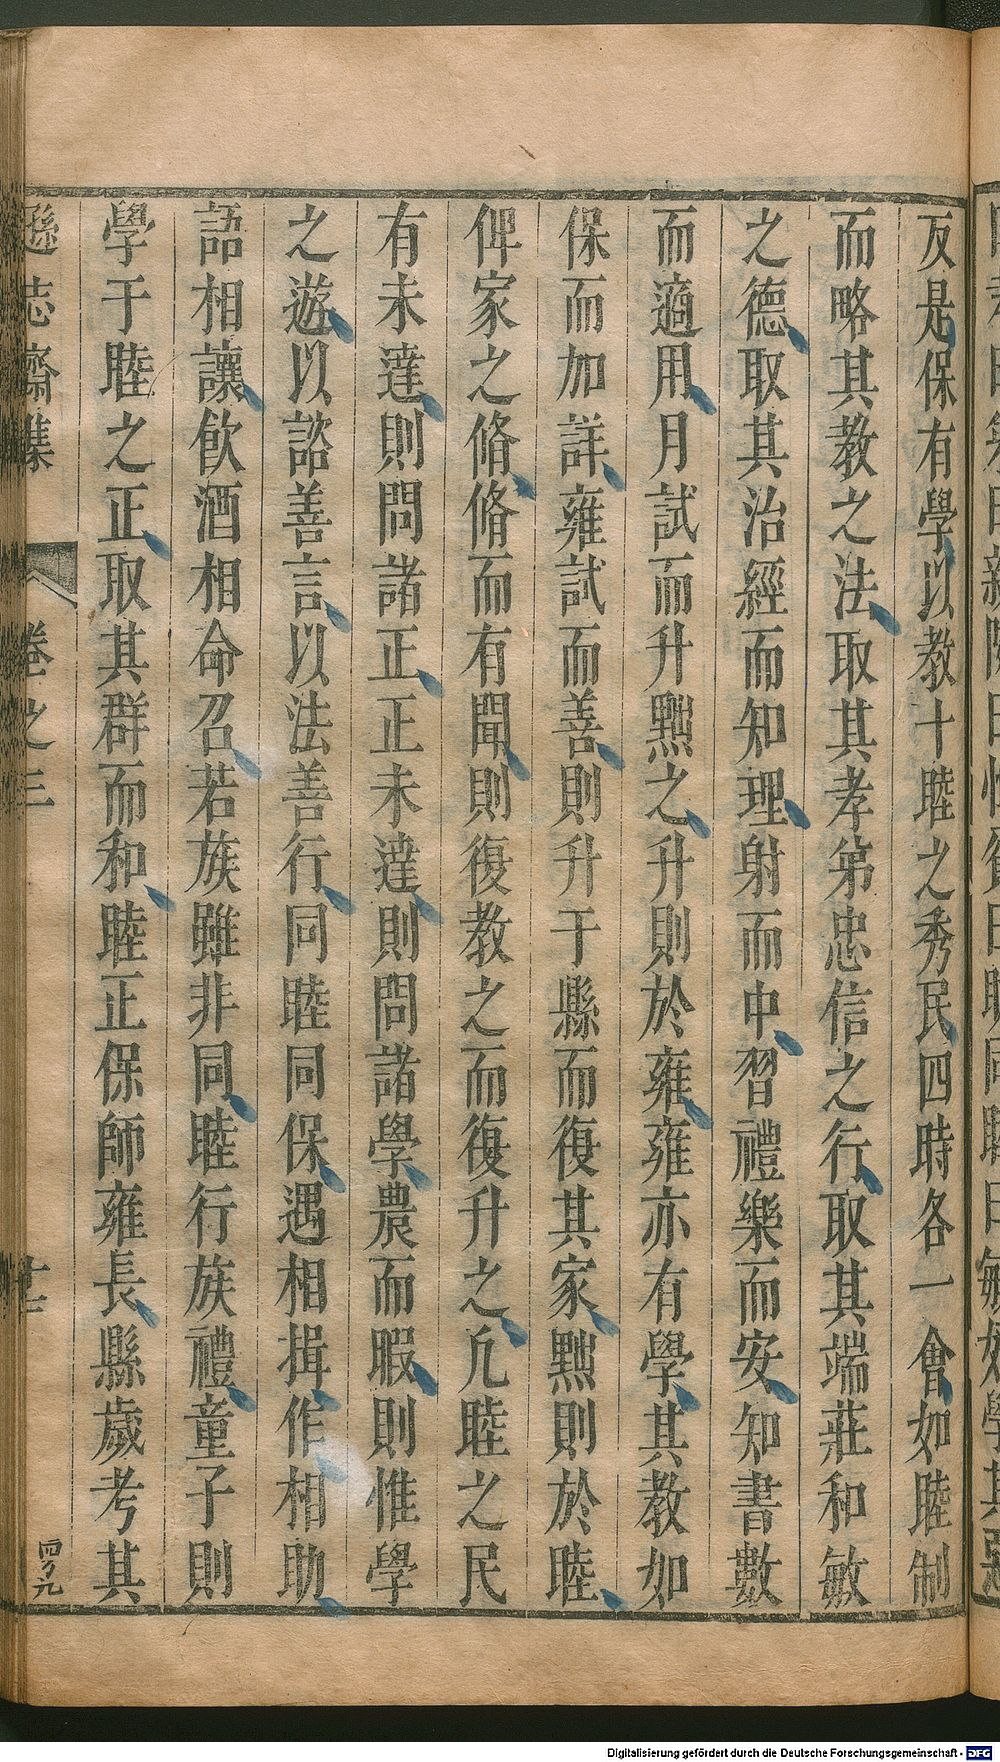 反是保有學以教十睦之秀民四時各一會如睦制
而略其教之法取其孝弟忠信之行取其端莊和敏
之德取其治經而知理射而中習禮樂而安知書數
而適用月試而升黜之升則於雍雍亦有學其教如
保而加詳雍試而善則升于縣而復其家黜則於睦
俾家之脩脩而有聞則復教之而復升之凢睦之民
有未達則問諸正正未達則問諸學農而暇則惟學
之遊以諮善言以法善行同睦同保遇相揖作相助
語相讓飲酒相命召若族雖非同睦行族禮童子則
學于睦之正取其群而和睦正保師雍長縣歲考其
遜志齋集 卷之三
Digitalisierung gefördert durch die Deutsche Forschungsgemeinschaft - DFG